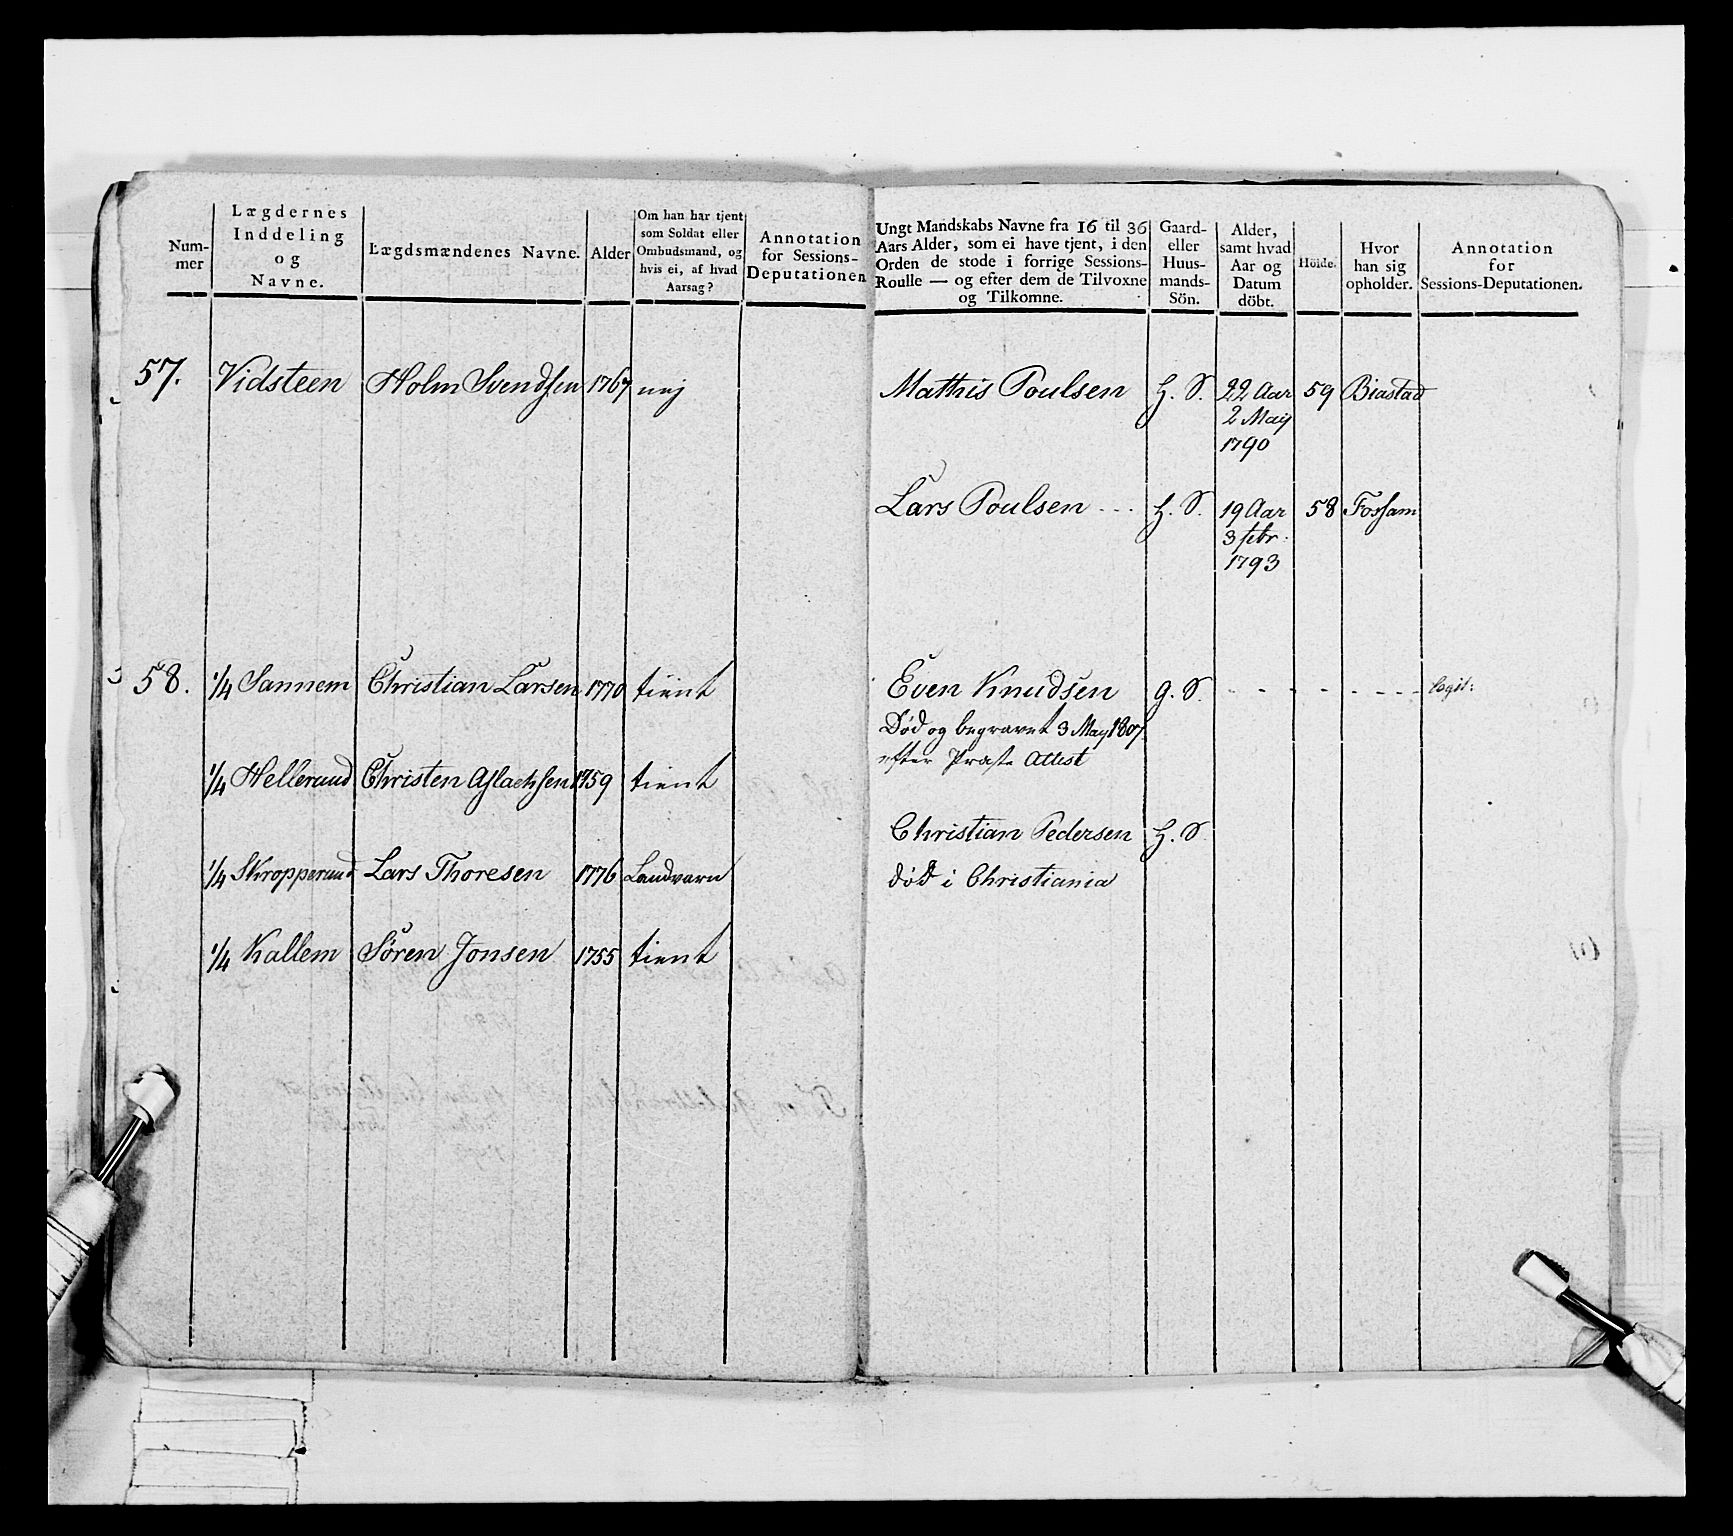 Num-
mer
Lægdernes
Inddeling
og
Navne.
Lægdsmændenes Navne.
Alder
Om han har tjent
som Soldat eller
Ombudsmand, og
hvis ei, af hvad
Aarsag?
Annotation
for Sessions-
Deputationen
57. Vidsteen Holm Svendsen 1767 nej
58. 1/4 Sannem Christian Larsen 1770 tient
1/4 Hellerund Christen Aslachsen 1759 tient
1/4 Skropperund Lars Thoresen 1776 Landvarn
1/4 Kallem Søren Jonsen 1755 tient
Ungt Mandskabs Navne fra 16 til 36
Aars Alder, som ei have tjent, i den
Orden de stode i forrige Sessions-
Roulle — og efter dem de Tilvoxne
og Tilkomne.
Gaard-
eller
Huus-
mands-
Sön.
Alder,
samt hvad
Aar og
Datum
döbt.
Höide.
Hvor
han sig
opholder.
Annotation
for
Sessions-Deputationen.
Mathis Poulsen H. S. 22 Aar 59 Biastad
2 May
1790
Lars Poulsen H. S. 19 Aar 58 Fossam
3 febr.
1793
Even Knudsen G. S.
Død og begravet 3 May 1807
efter Præste Attest
Christian Pedersen H. S.
død i Christiania